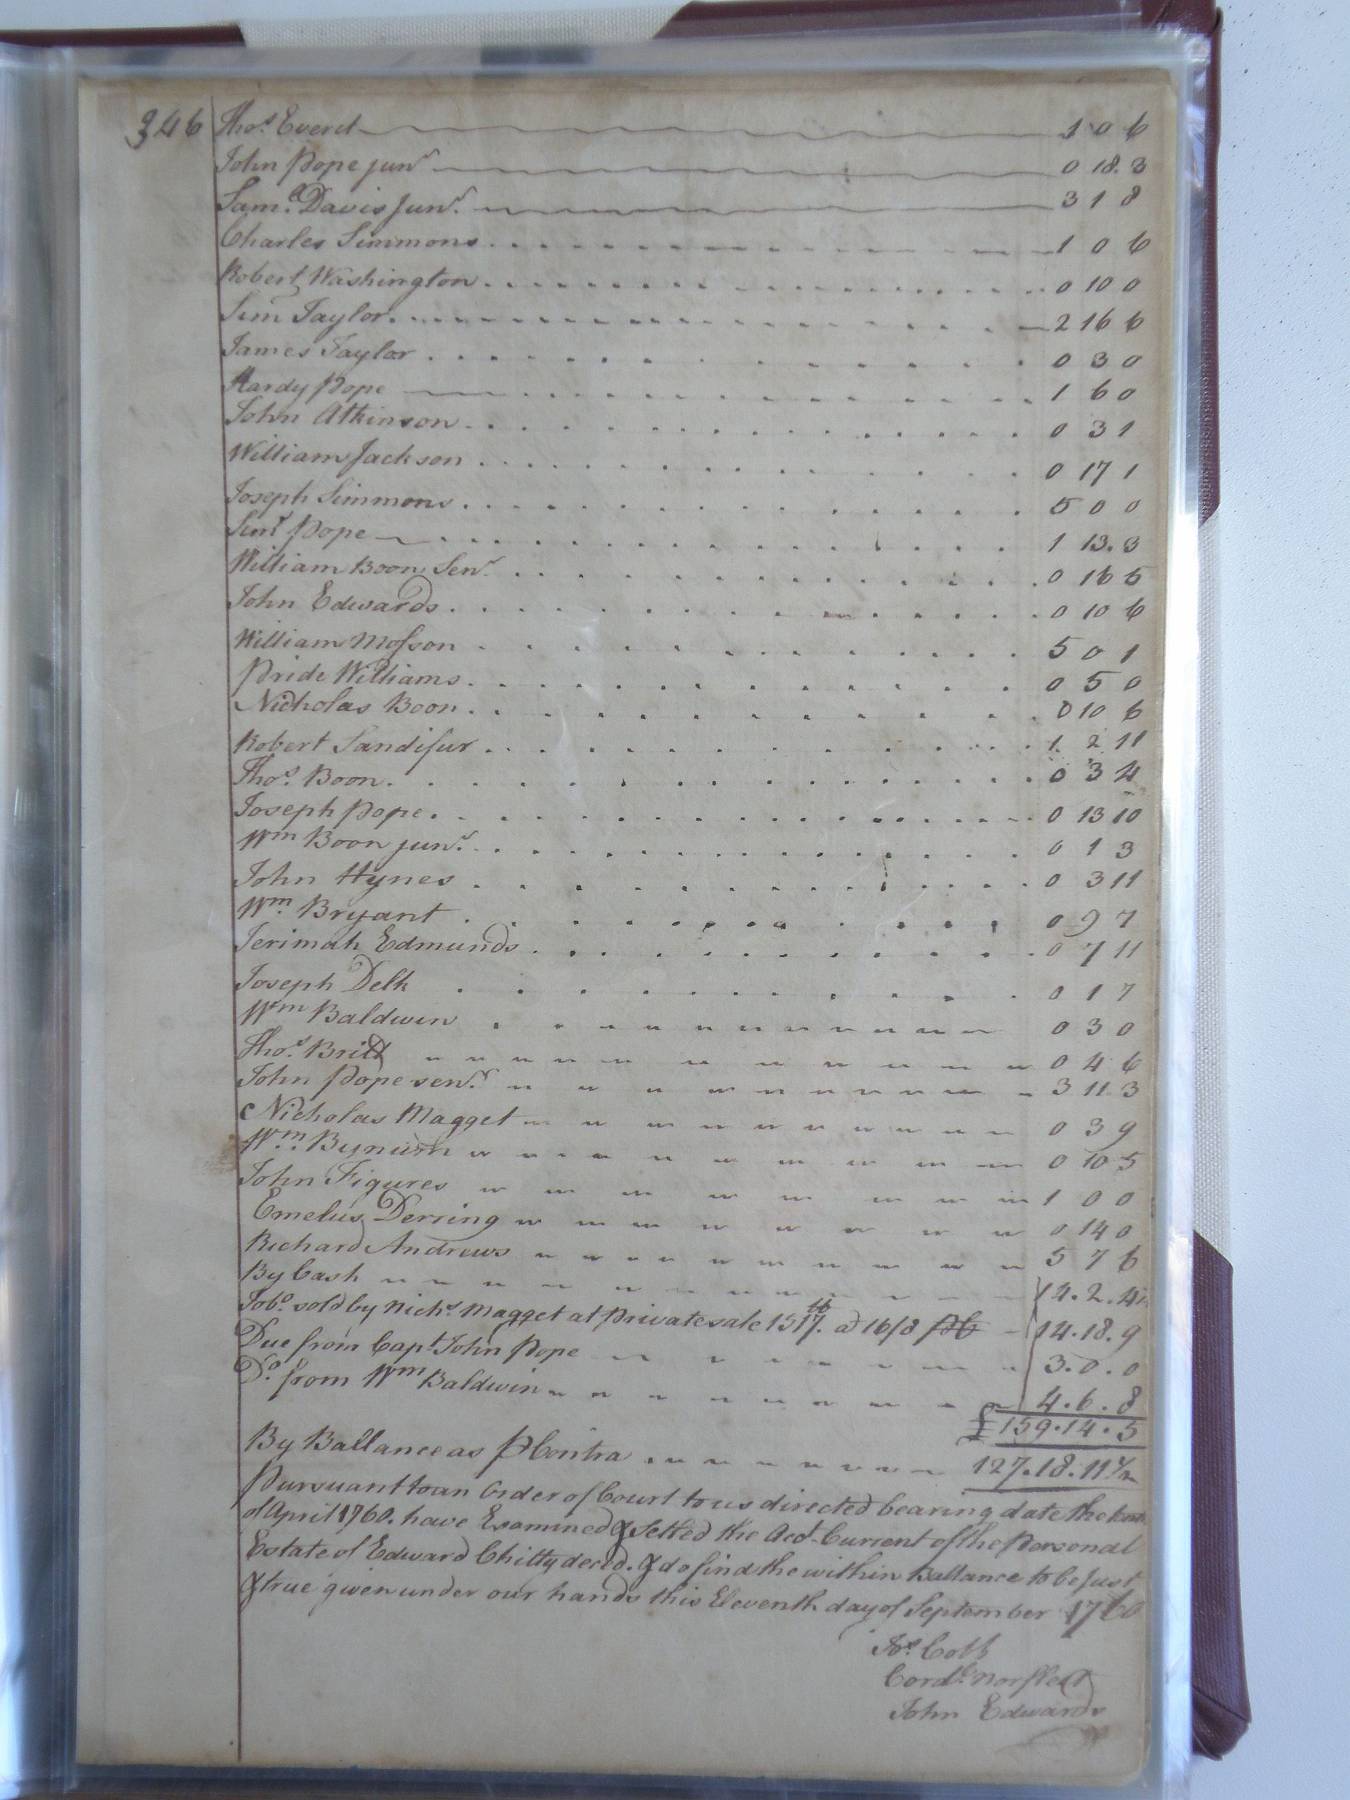 346 Thos. Everet 1 0 6
John Pope junr 0 18. 3
Saml. Davis Junr. 3 1 8
Charles Simmons 1 0 6
Robert Washington 0 10 0
Sim Taylor 2 16 6
James Taylor 0 3 0
Hardy Pope 1 6 0
John Atkinson 0 3 1
William Jackson 0 17 1
Joseph Simmons 5 0 0
Pope 1 13. 3
William Boon Senr. 0 16 5
John Edwards 0 10 6
William Mosson 5 0 1
Pride Williams 0 5 0
Nicholas Boon 0 10 6
Robert Sandifur 1 2 11
Thos. Boon 0 3 4
Joseph Pope 0 13 10
Wm Boon junr. 0 1 3
John Hynes 0 3 11
Wm. Bryant 0 9 7
Jerimah Edmunds 0 7 11
Joseph Delk 0 1 7
Wm Baldwin 0 3 0
Thos. Britt 0 4 6
John Pope senr. 3 11 3
Nicholas Magget 0 3 9
Wm. Bynum 0 10 5
John Figures 1 0 0
Emelus Derring 0 14 0
Richard Andrews 5 7 6
By Cash 14. 2. 4½
Tobo. sold by Nichs. Magget at Private sale 1517 lb. a 16/8 14. 18. 9
Due from Capt John Pope 3. 0. 0
Do. from Wm Baldwin 4. 6. 8
£159. 14. 5
By Ballance as P Contra 127. 18. 11½
Pursuant to an Order of Court to us directed bearing date the
of April 1760. have Examined & Setled the Acct. Current of the Personal
Estate of Edward Chitty decd. & do find the within Ballance to be Just
& true given under our hands this Eleventh day of September 1760
Jos. Cobb
Cordl. Norfleet
John Edwards